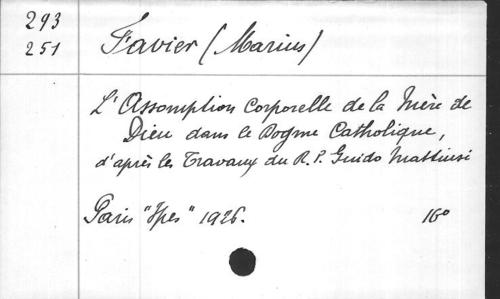 293
251
Favier (Marius)
L'Assomption Corporelle de la Mère de
Dieu dans le Dogme Catholique,
d'après les Travaux du R. P. Guido Mattiussi
Paris "Spes" 1926. 16°